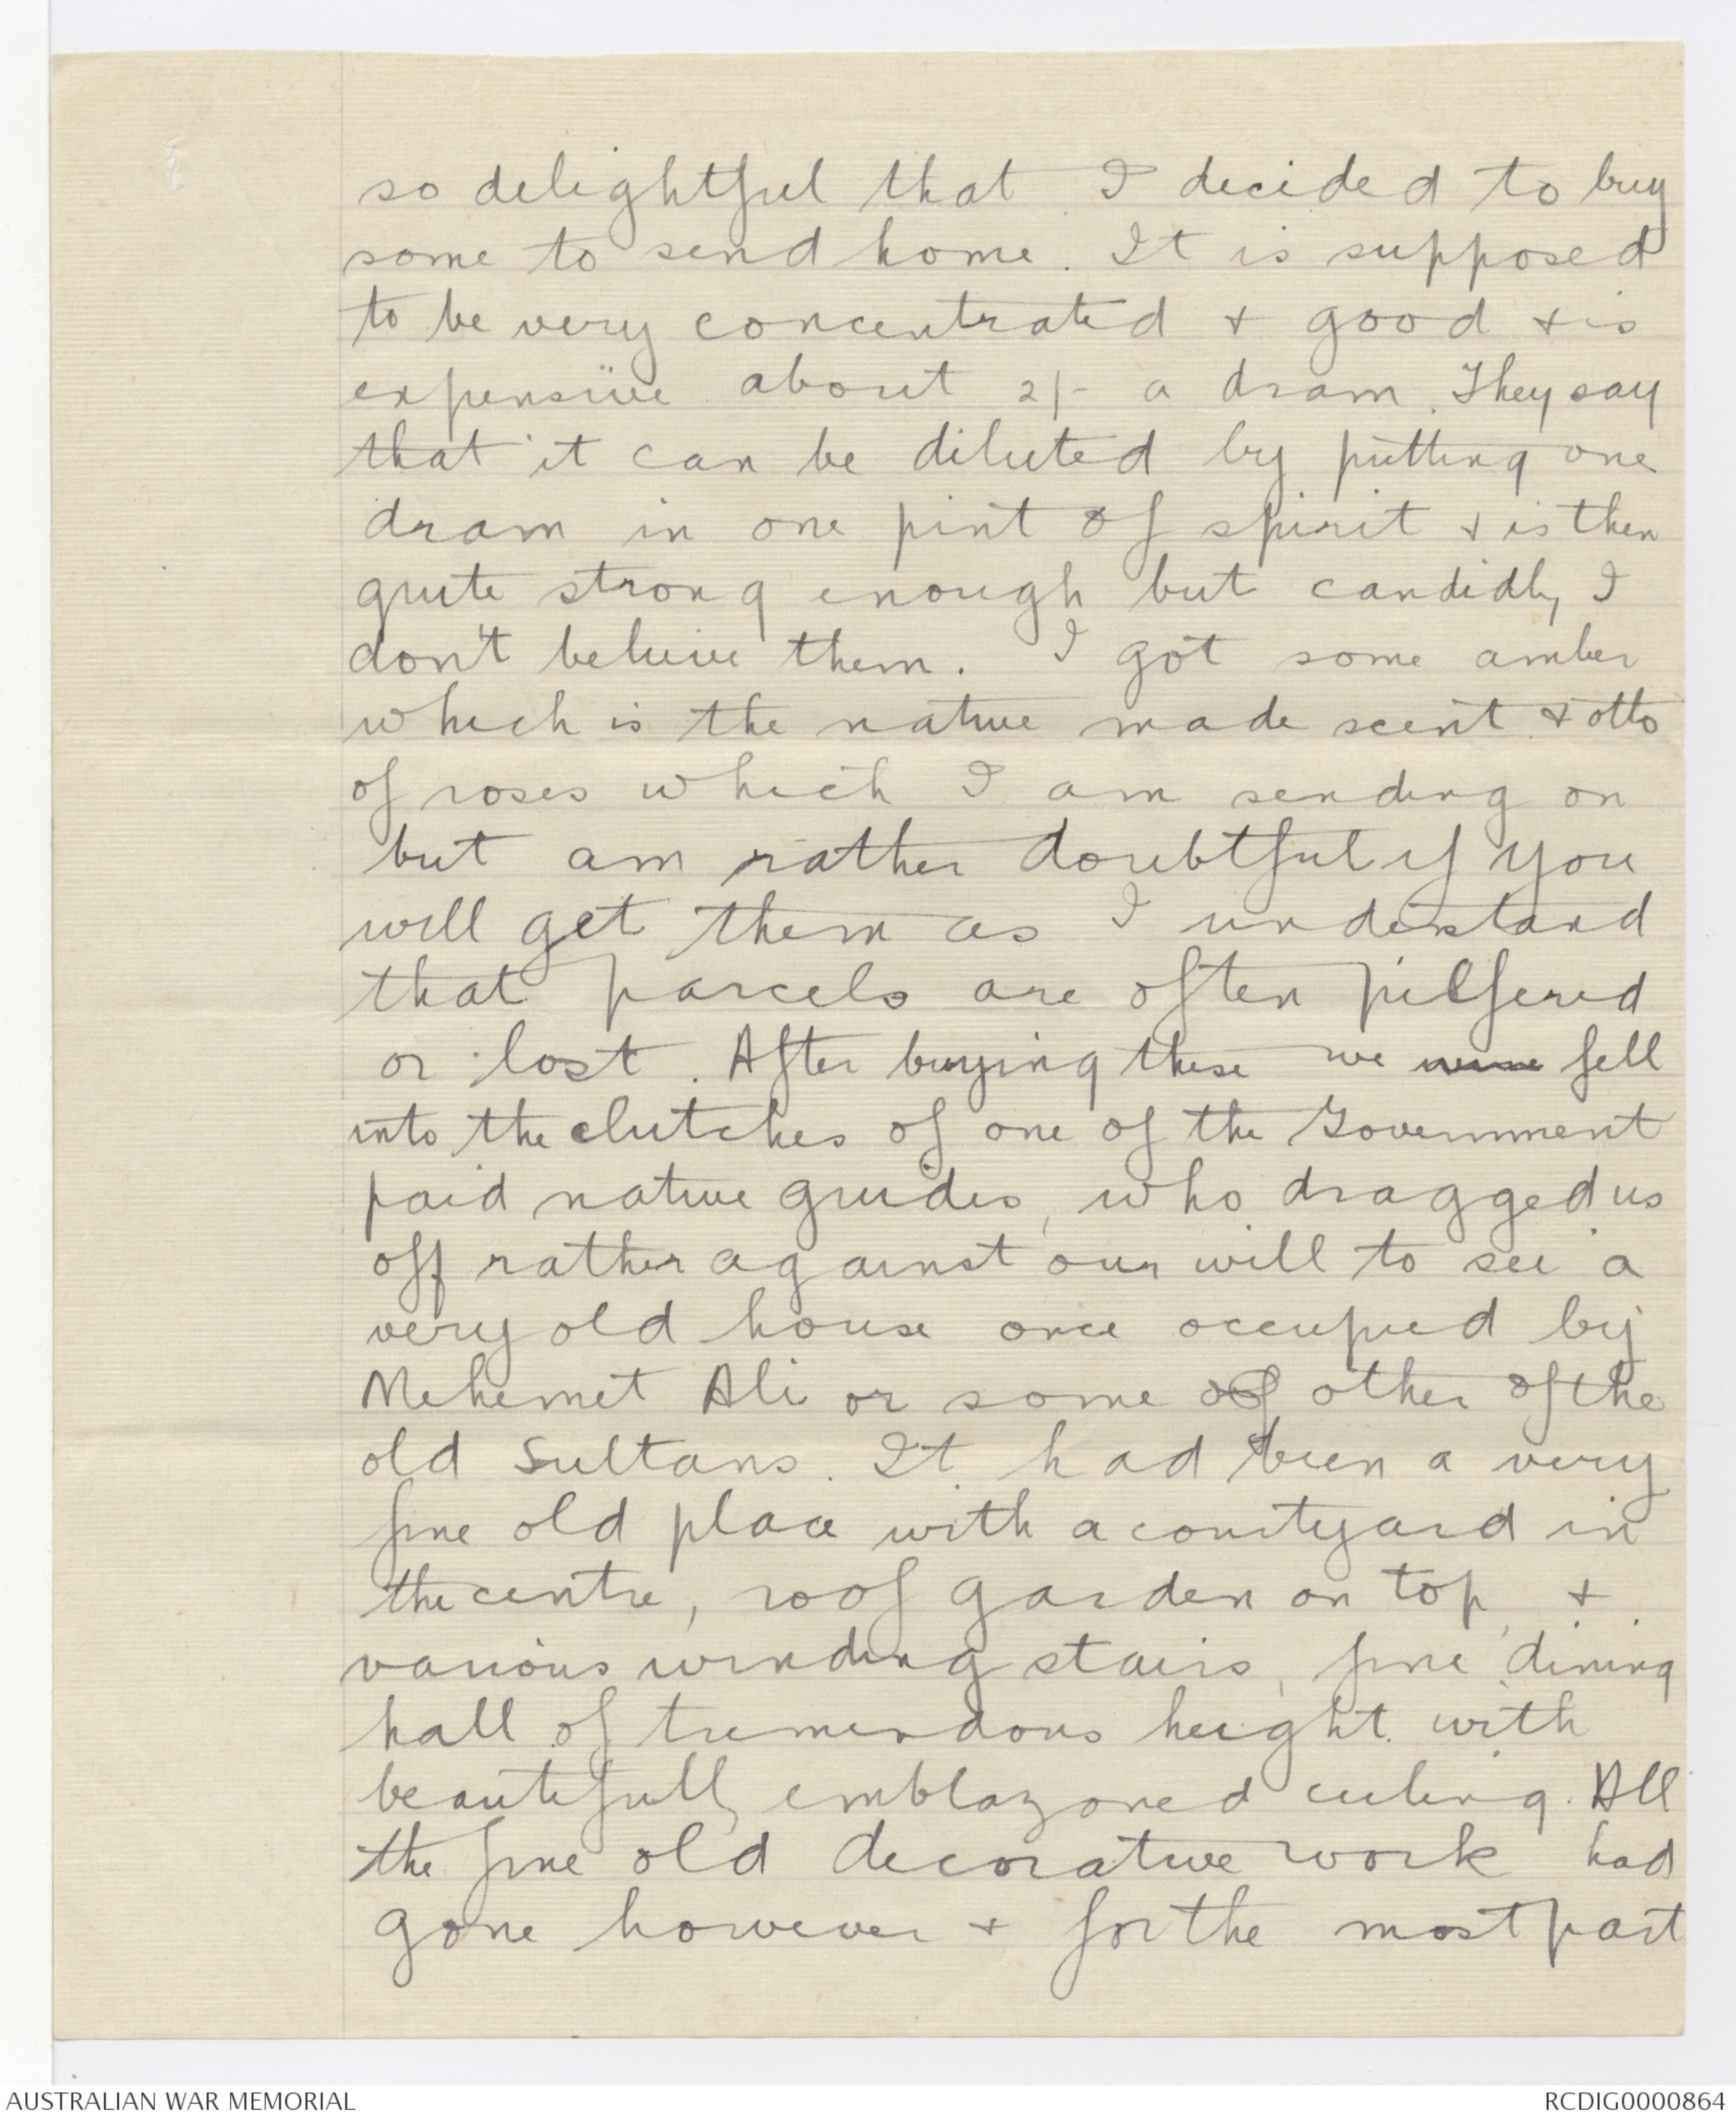 so delightful that I decided to buy
some to send home. It is supposed
to be very concentrated & good & is
expensive about 2/- a dram. They say
that it can be diluted by putting one
dram in one pint of spirit & is then
quite strong enough but candidly I
don't believe them. I got some amber
which is the native made scent & otto
of roses which I am sending on
but am rather doubtful if you
will get them as I understand
that parcels are often pilfered
or lost. After buying these we fell
into the clutches of one of the Government
paid native guides, who dragged us
off rather against our will to see a
very old house once occupied by
Mehemet Ali or some of other of the
old Sultans. It had been a very
fine old place with a courtyard in
the centre, roof garden on top, &
various winding stairs, fine dining
hall of tremendous height with
beautifully emblazoned ceiling. All
the fine old decorative work had
gone however & for the most part
AUSTRALIAN WAR MEMORIAL
RCDIG0000864